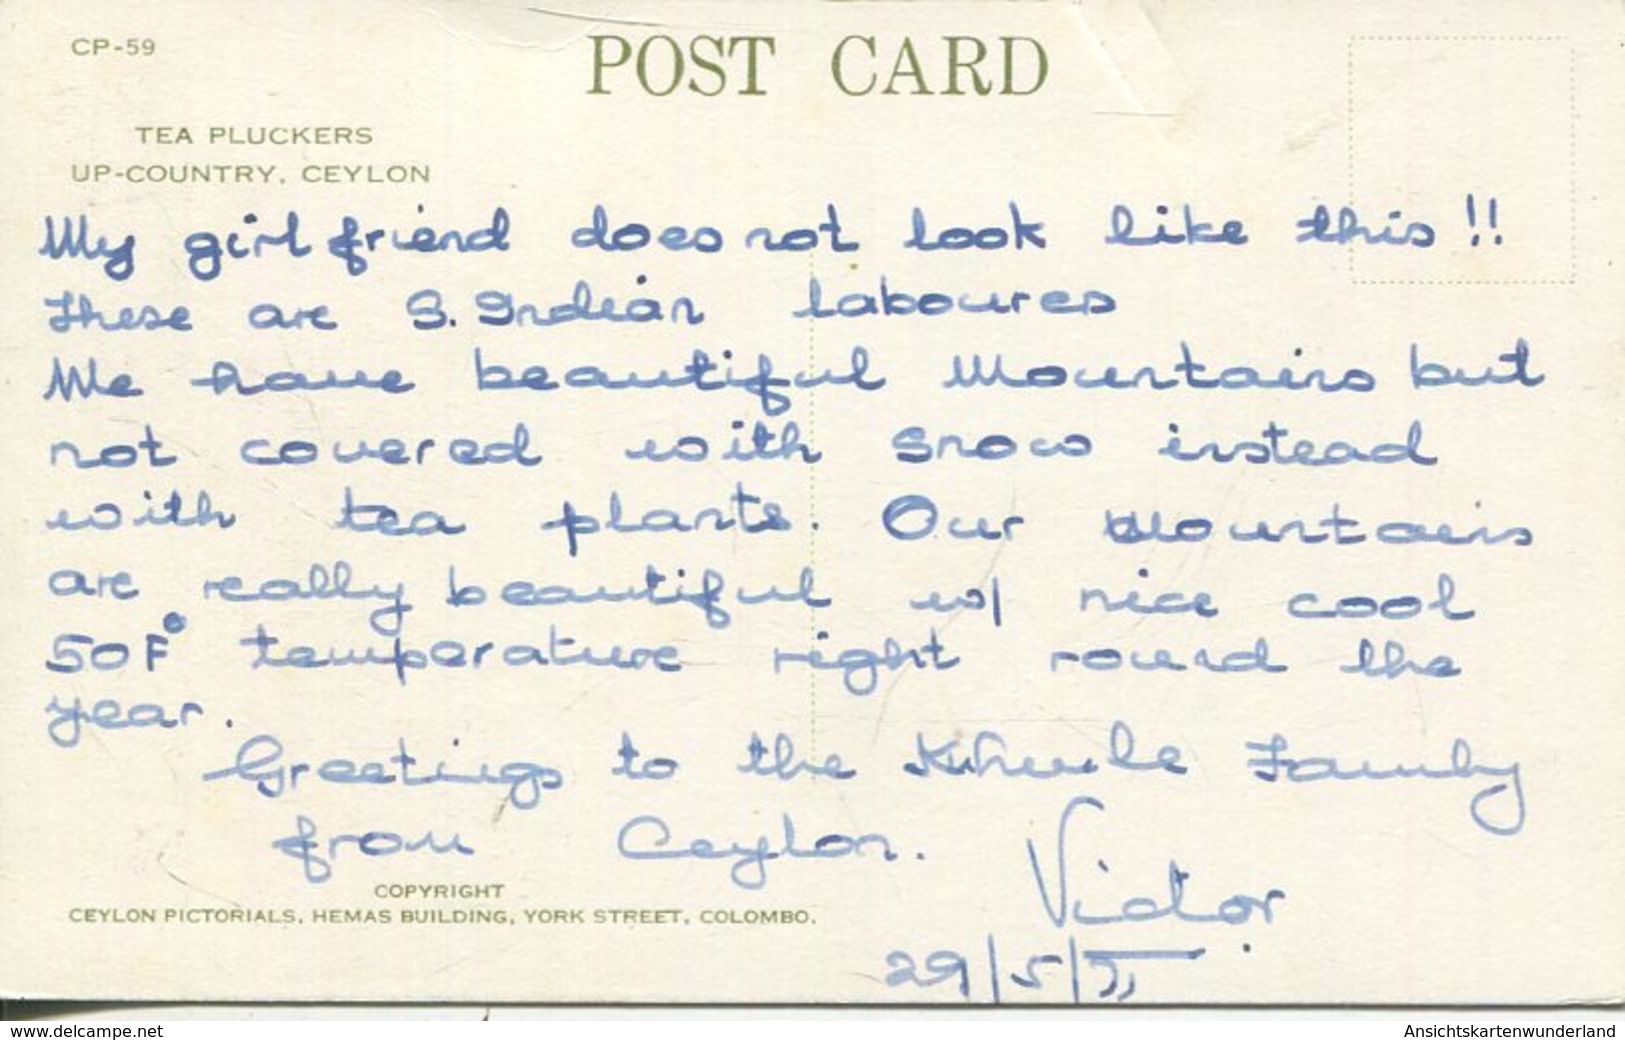 CP-59
POST CARD
TEA PLUCKERS
UP-COUNTRY, CEYLON
My girl friend does not look like this!!
These are S. Indian laboures
We have beautiful Mountains but
not covered with snow instead
with tea plants. Our Mountains
are really beautiful w/ nice cool
50F° temperature right round the
year.
Greetings to the Family
from Ceylon.
Victor
29/5/
COPYRIGHT
CEYLON PICTORIALS, HEMAS BUILDING, YORK STREET, COLOMBO.
www.delcampe.net
Ansichtskartenwunderland